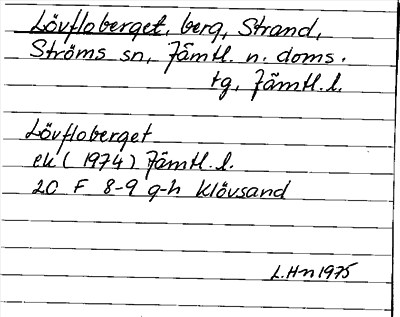 Lövfloberget, berg, Strand,
Ströms sn, Jämtl. n. doms.
tg, Jämtl. l.
Lövfloberget
ek (1974) Jämtl. l.
20 F 8-9 g-h Klövsand
L.Hn 1975